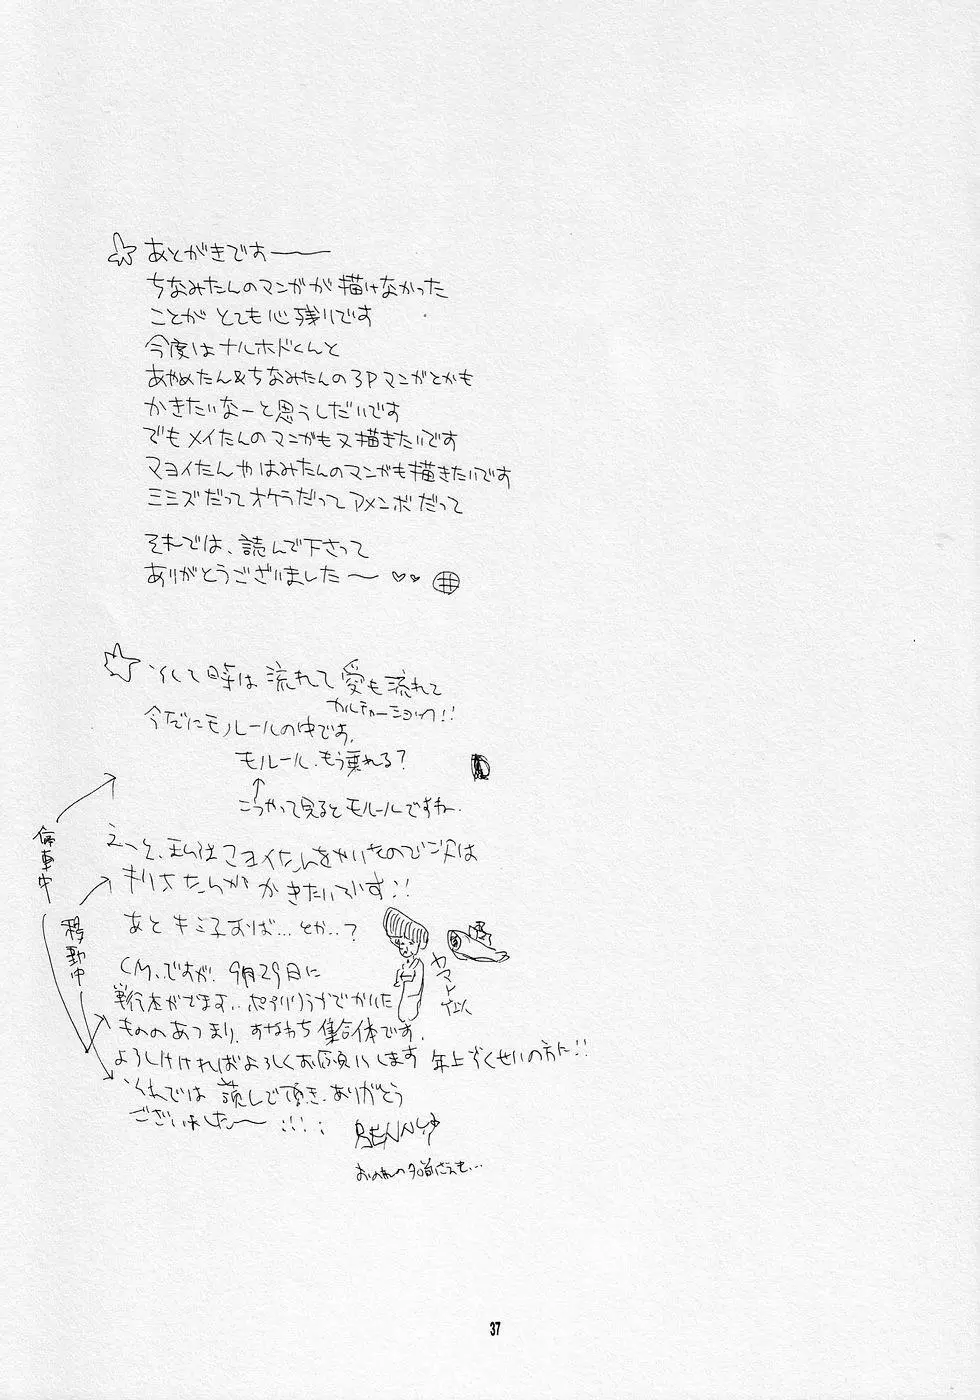 あとがきですーー
ちなみたんのマンガが描けなかった
ことが とても心残りです
今度はナルホドくんと
あやめたん&ちなみたんの3Pマンガとかも
かきたいなーと思うしだいです
でもメイたんのマンガも又描きたいです
マヨイたんやはみたんのマンガも描きたいです
ミミズだってオケラだってアメンボだって
それでは、読んで下さって
ありがとうございました〜 ♡♡ 井
そして時は流れて愛も流れて
カルチャーショック!!
今だにモノルールの中です。
モルール、もう乗れる?
↑
こうかって見るとモルールですね。
停車中
えっと、私はマヨイたんをかいたもので次は
キリオたんが かきたいです!!
移動中
あと キミ子おば…とか…?
ヤマト
CM、ですが、9月29日に
単行本がでます、 でかいた
もののあつまり、すなわち集合体です。
よろしければよろしくお願いします 年上 くせいの方に!!
それでは 読んで頂き、ありがとう
ございました〜 :::
BENNY
おのれの名前さえも…
37